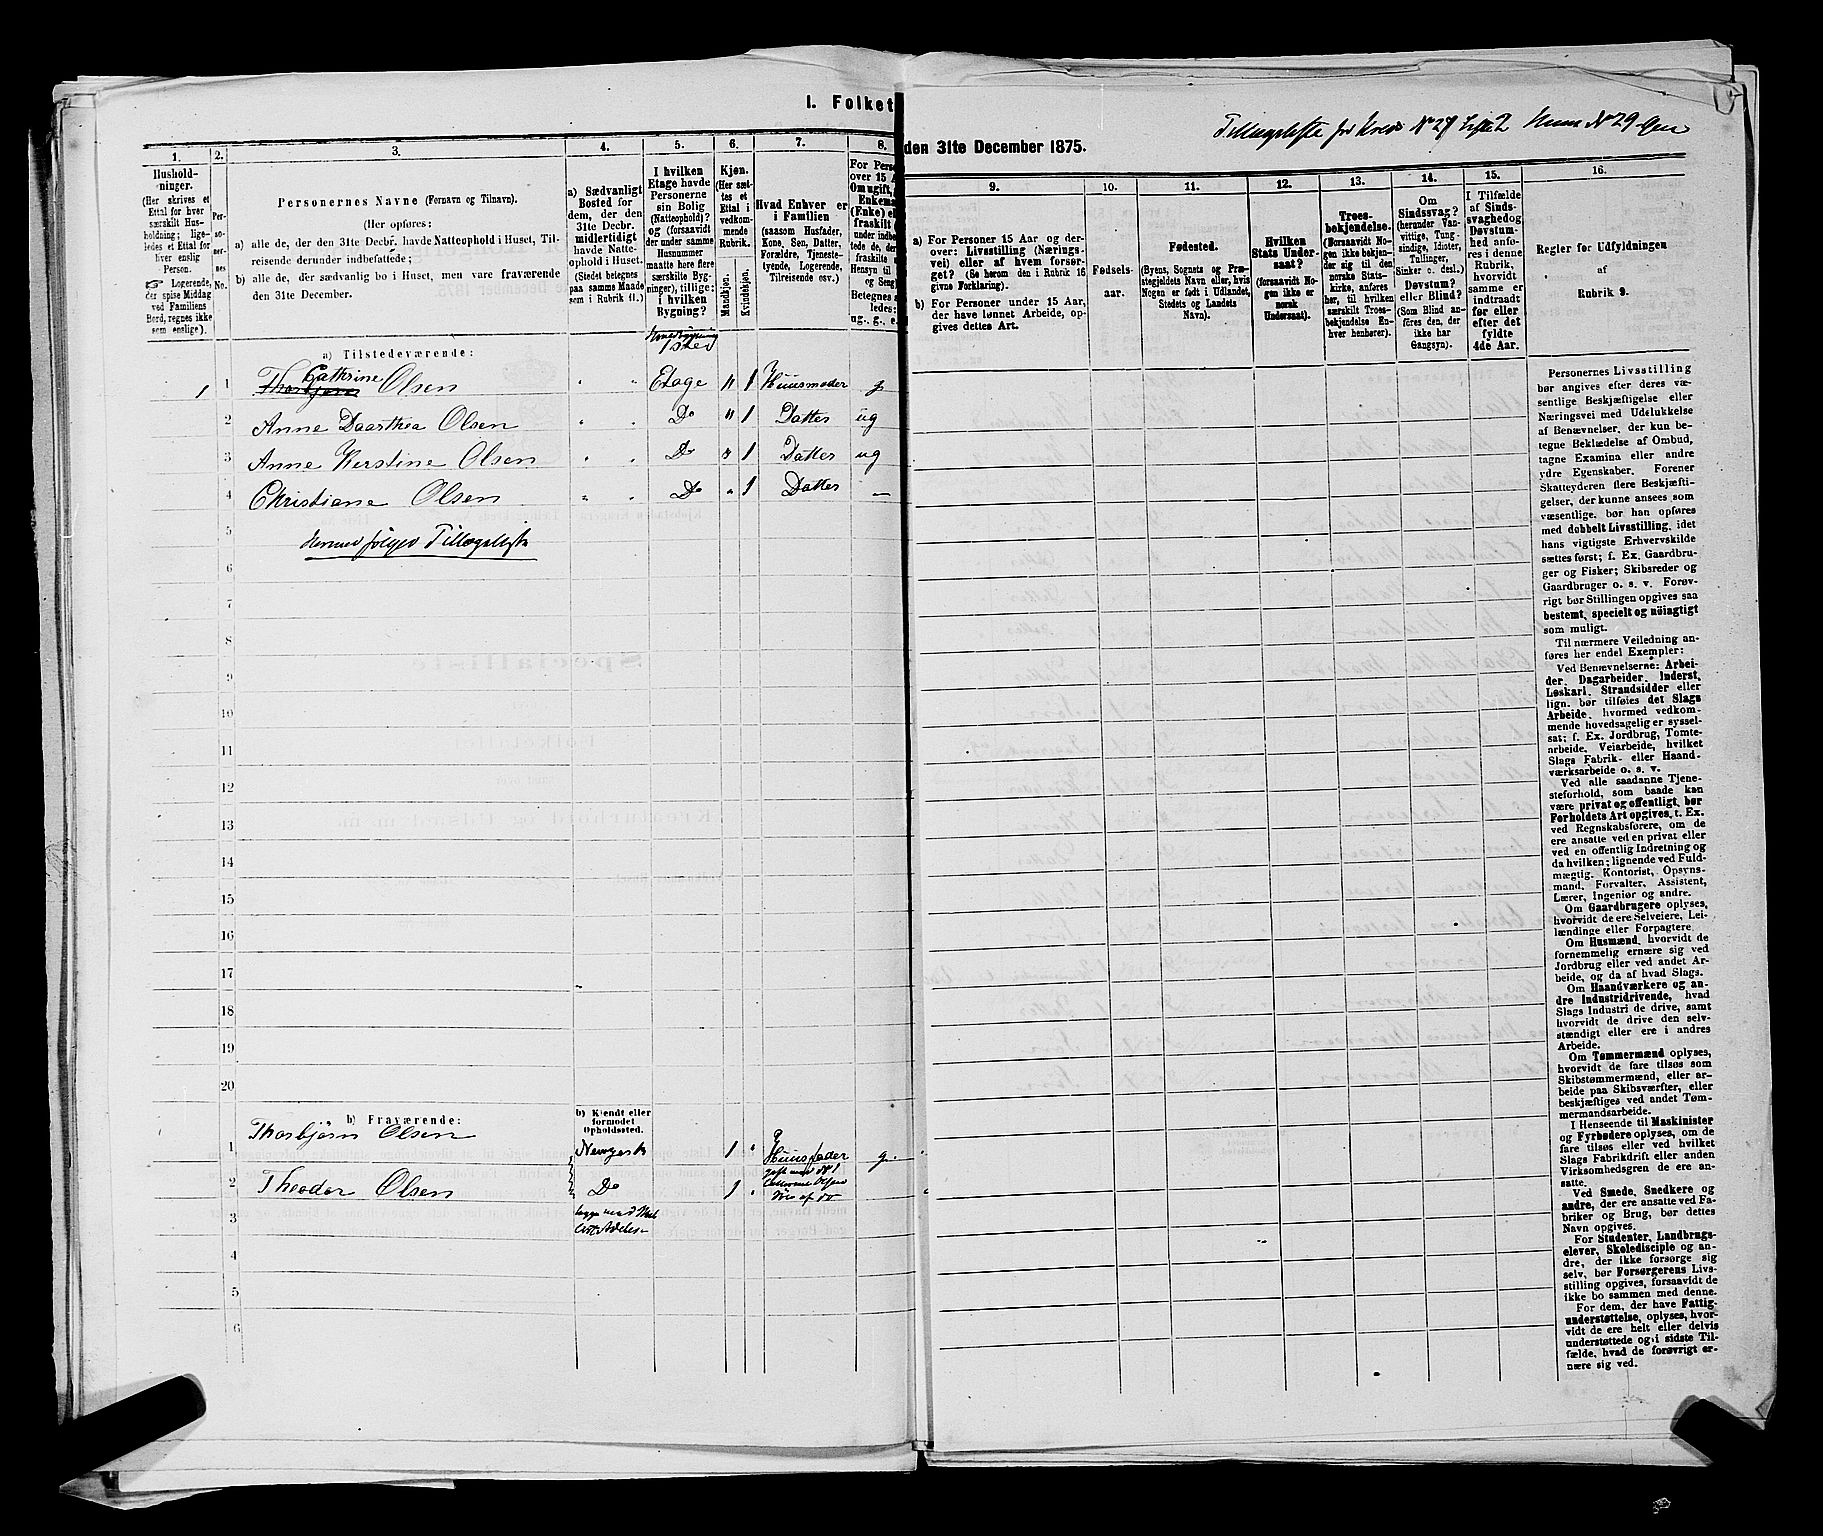 I. Folket
1.
2.
3.
4.
5.
6.
7.
8.
Hushold-
ninger.
(Her skrives et
Ettal for hver
særskilt Hus-
holdning; lige-
ledes et Ettal for
hver enslig
Person.
☞ Logerende,
der spise Middag
ved Familiens
Bord, regnes ikke
som enslige).
Per-
so-
ner-
nes
No.
Personernes Navne (Fornavn og Tilnavn).
(Her opføres:
a) alle de, der den 31te Decbr. havde Natteophold i Huset, Til-
reisende derunder indbefattede;
b) alle de, der sædvanlig bo i Huset, men vare fraværende
den 31te December.
a) Sædvanligt
Bosted for
dem, der den
31te Decbr.
midlertidigt
havde Natte-
ophold i Huset.
(Stedet betegnes
paa samme Maade
som i Rubrik 11.)
I hvilken
Etage havde
Personerne
sin Bolig
(Natteophold)?
og (forsaavidt
der under samme
Husnummer
maatte høre flere
særskilte Byg-
ninger), tillige:
i hvilken
Bygning?
Kjøn.
(Her sæt-
tes et
Ettal i
vedkom-
mende
Rubrik.
Mandkjøn.
Kvindekjøn.
Hvad Enhver er
i Familien
(saasom Husfader,
Kone, Søn, Datter,
Forældre, Tjeneste-
tyende, Logerende,
Tilreisende osv.)
For Perso
over 15 A
Om ugift,
Enkema
(Enke) el
fraskilt
under indbe
tede de, der
fraskilte
Hensyn til
og Seng
Betegnes s
ledes:
ug., g., e.
a) Tilstedeværende:
1ste
1 1 Thorbjørn Cathrine Olsen " " Etage " 1 Huusmoder g
2 Anne Daarthea Olsen " " Do " 1 Datter ug
3 Anne Kerstine Olsen " " Do " 1 Datter ug
4 Christiane Olsen " " Do " 1 Datter —
5 Hermed følger Tillægsliste
6
7
8
9
10
11
12
13
14
15
16
17
18
19
20
b) Fraværende:
b) Kjendt eller
formodet
Opholdssted.
1 Thorbjørn Olsen 1 " Huusfader g.
gift med No 1
2 Theodor Olsen Do 1 " Søn af do
3
4
5
6
den 31te December 1875.
Tillægsliste for Kreds No 27 Liste 2 Huus No 29
9.
10.
11.
12.
13.
14.
15.
16.
a) For Personer 15 Aar og der-
over: Livsstilling (Nærings-
vei) eller af hvem forsør-
get? (Se herom den i Rubrik 16
givne Forklaring).
b) For Personer under 15 Aar,
der have lønnet Arbeide, op-
gives dettes Art.
Fødsels-
aar.
Fødested.
(Byens, Sognets og Præ-
stegjeldets Navn eller, hvis
Nogen er født i Udlandet,
Stedets og Landets
Navn).
Hvilken
Stats Under-
saat?
(forsaavidt No-
gen ikke er
norsk
Undersaat).
Troes-
bekjendelse.
(Forsaavidt No-
gen ikke bekjen-
der sig til den
norske Stats-
kirke, anføres
her, til hvilken
særskilt Troes-
bekjendelse En-
hver henhører).
Om
Sindssvag?
(herunder Van-
vittige, Tung-
sindige, Idioter,
Tullinger,
Sinker o. desl.)
Døvstum?
eller Blind?
(Som Blind an-
føres den, der
ikke har
Gangsyn).
I Tilfælde
af Sinds-
svaghedog
Døvstum-
hed anfø-
res i denne
Rubrik,
hvorvidt
samme er
indtraadt
før eller
efter det
fyldte
4de Aar.
Regler for Udfyldningen
af
Rubrik 9.
Personernes Livsstilling
bør angives efter deres væ-
sentlige Beskjæftigelse eller
Næringsvei med Udelukkelse
af Benævnelser, der kun be-
tegne Beklædelse af Ombud,
tagne Examina eller andre
ydre Egenskaber. Forener
Skatteyderen flere Beskjæfti-
gelser, der kunne ansees som
væsentlige, bør han opføres
med dobbelt Livsstilling, idet
hans vigtigste Erhvervskilde
sættes først; f. Ex. Gaardbru-
ger og Fisker; Skibsreder og
Gaardbruger o. s. v. Forøv-
rigt bør Stillingen opgives saa
bestemt, specielt og nøiagtigt
som muligt.
Til nærmere Veiledning an-
føres her endel Exempler:
Ved Benævnelserne: Arbei-
der, Dagarbeider, Inderst,
Løskarl, Strandsidder eller
lign. bør tilføies det Slags
Arbeide, hvormed vedkom-
mende hovedsagelig er syssel-
sat; f. Ex. Jordbrug, Tomte-
arbeide, Veiarbeide, hvilket
Slags Fabrik- eller Haand-
værksarbeide o. s. v.
Ved alle saadanne Tjene-
steforhold, som baade kan
være privat og offentligt, bør
Forholdets Art opgives, t. Ex.
ved Regnskabsførere, om de
ere ansatte ved en privat eller
ved en offentlig Indretning og
da hvilken; lignende ved Fuld-
mægtig, Kontorist, Opsyns-
mand, Forvalter, Assistent,
Lærer, Ingeniør og andre.
Om Gaardbrugere oplyses,
hvorvidt de ere Selveiere, Lei-
lændinge eller Forpagtere.
Om Husmænd, hvorvidt de
fornemmelig ernære sig ved
Jordbrug eller ved andet Ar-
beide, og da af hvad Slags.
Om Haandværkere og an-
dre Industridrivende, hvad
Slags Industri de drive, samt
hvorvidt de drive den selv-
stændigt eller ere i andres
Arbeide.
Om Tømmermænd oplyses,
hvorvidt de fare tilsøs som
Skibstømmermænd, eller ar-
beide paa Skibsværfter, eller
beskjæftiges ved andet Tøm-
mermandsarbeide.
I Henseende til Maskinister
og Fyrbødere oplyses, om de
fare tilsøs eller ved hvilket
Slags Fabrikdrift eller anden
Virksomhedsgren de ere an-
satte.
Ved Smede, Snedkere og
andre, der ere ansatte ved Fa-
briker og Brug, bør dettes
Navn opgives.
For Studenter, Landbrugs-
elever, Skoledisciple og an-
dre, der ikke forsørge sig
selv, bør Forsørgerens Livs-
stilling opgives, forsaavidt de
ikke bo sammen med denne.
For dem, der have Fattig-
understøttelse, oplyses, hvor-
vidt de ere helt eller delvis
understøttede og i sidste Til-
fælde, hvad de forøvrigt er-
nære sig ved.